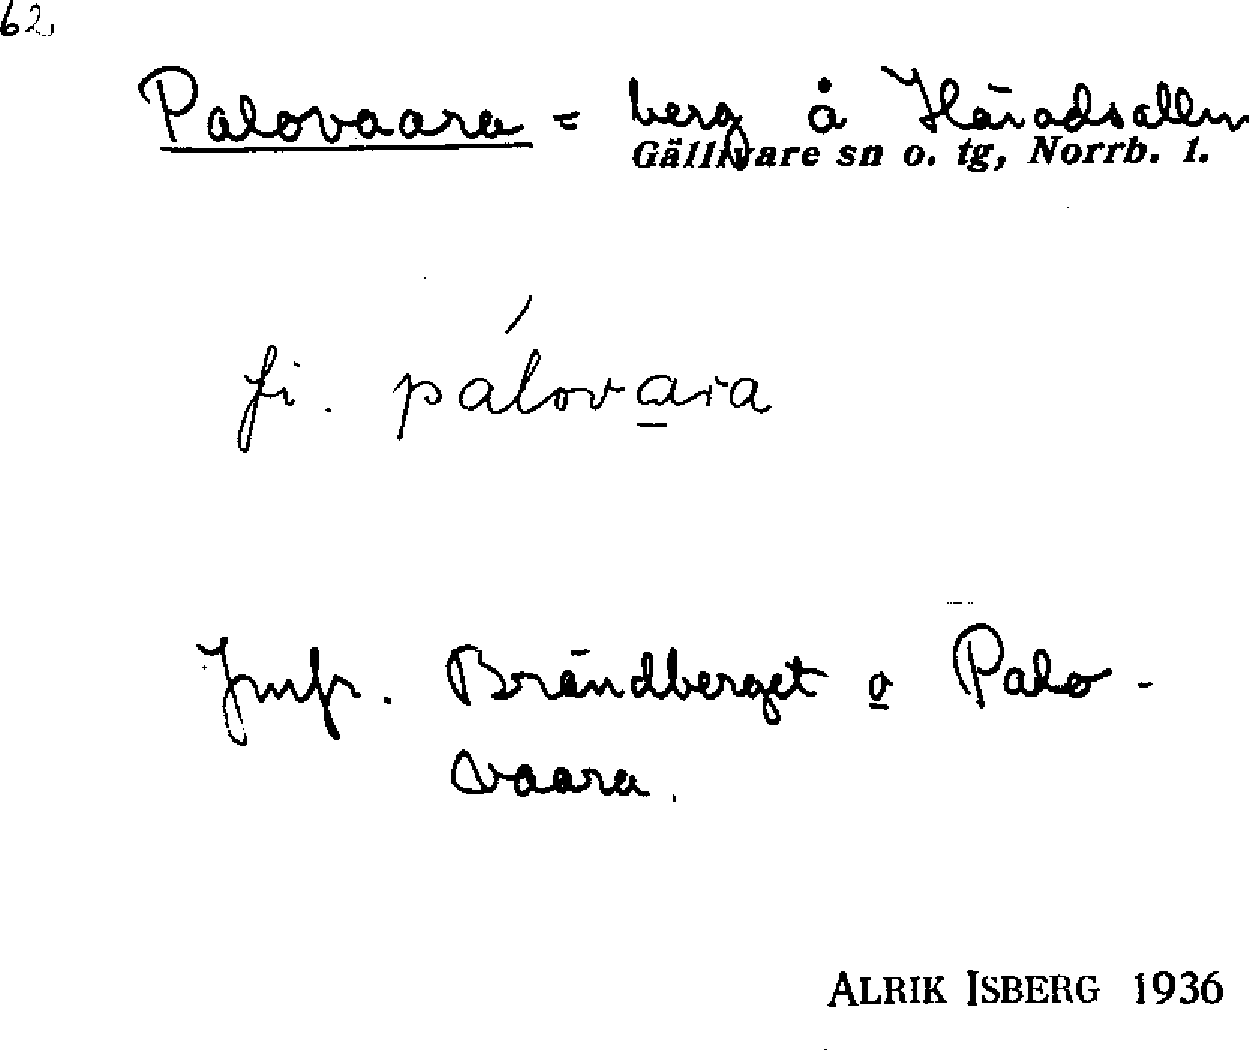 62,
Palovaara = berg å Häradsallm
Gällivare sn o. tg, Norrb. l.
fi. pálovara
Jmfr. Brändberget o Palo-
vaara.
ALRIK ISBERG 1936